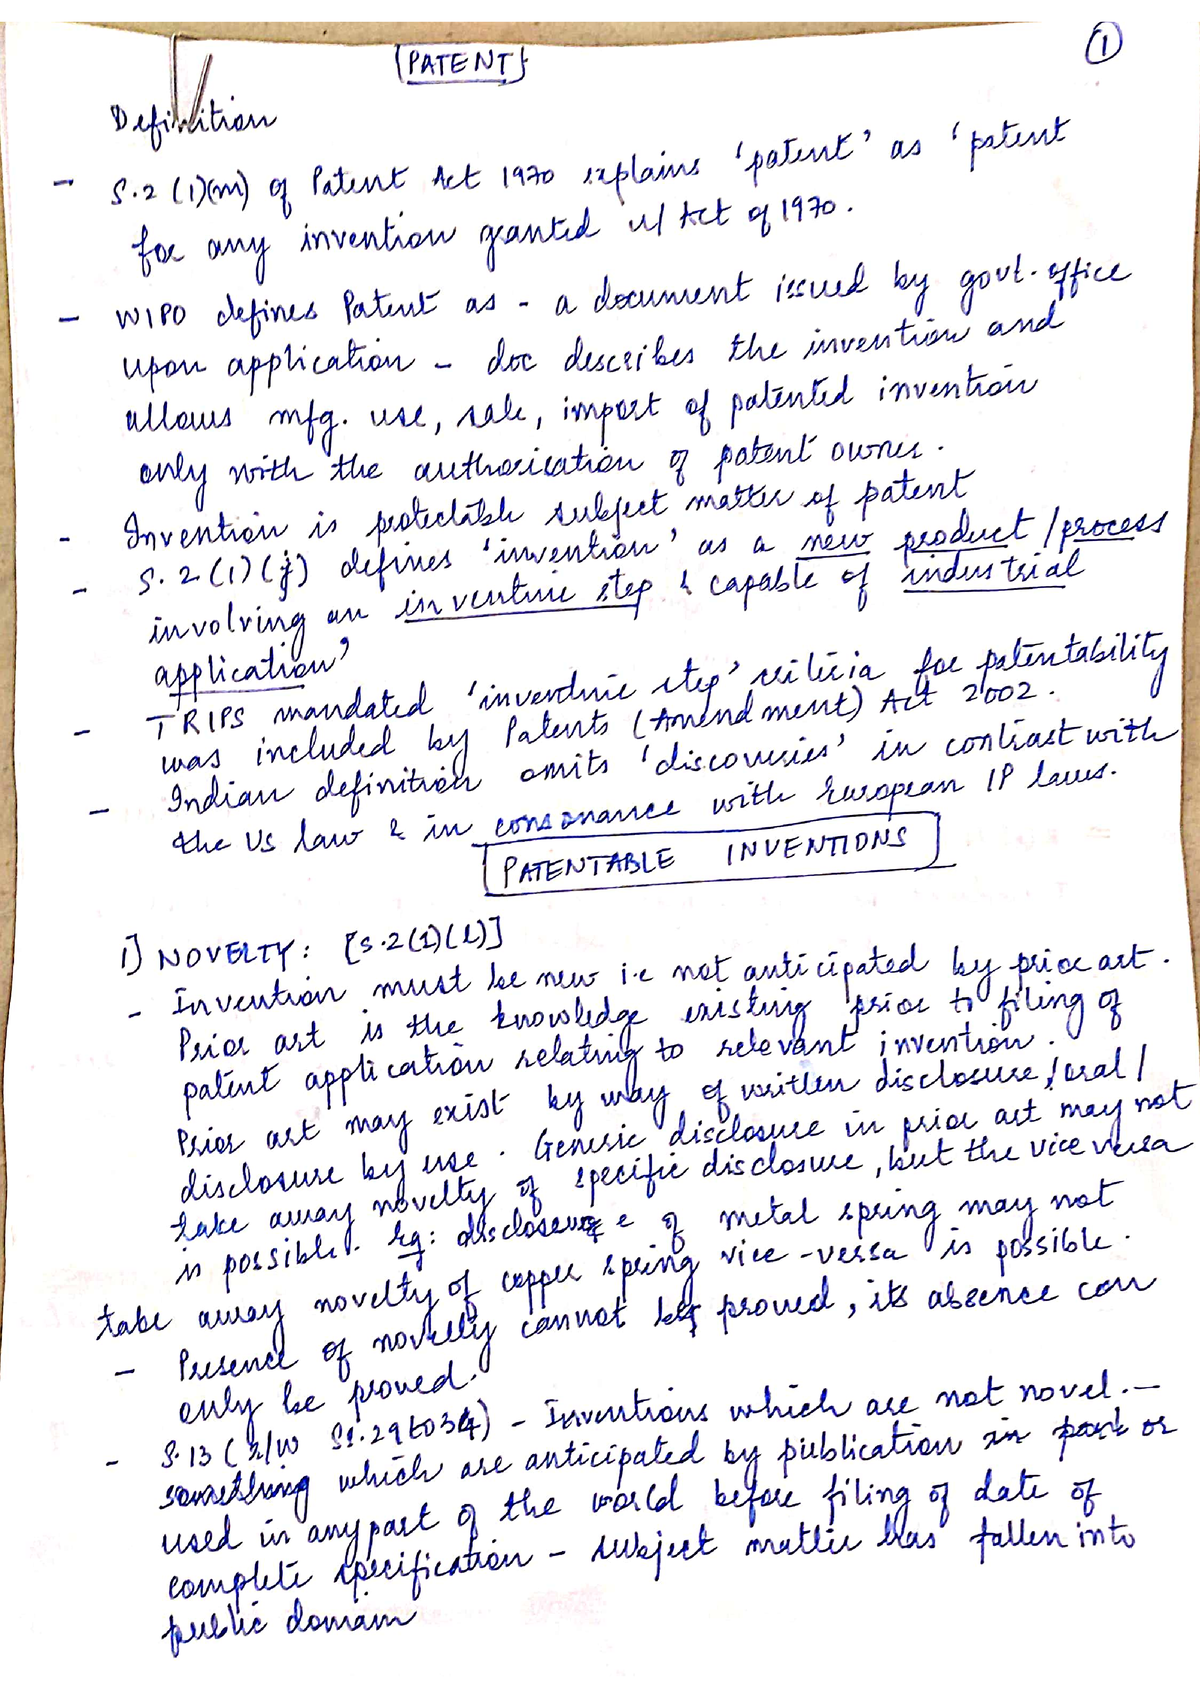 PATENT
1
Definition
- S.2 (1)(m) of Patent Act 1970 explains 'patent' as 'patent
for any invention granted u/ Act of 1970.
- WIPO defines Patent as - a document issued by govt. office
upon application - doc describes the invention and
allows mfg. use, sale, import of patented invention
only with the authorisation of patent owner.
- Invention is protectable subject matter of patent
- S. 2 (1) (j) defines 'invention' as a new product / process
involving an inventive step & capable of industrial
application'
- TRIPS mandated 'inventive step' criteria for patentability
was included by Patents (Amendment) Act 2002.
- Indian definition omits 'discoveries' in contrast with
the US law & in consonance with European IP laws.
PATENTABLE INVENTIONS
1] NOVELTY: [S.2(1)(l)]
- Invention must be new i.e not anticipated by prior art.
Prior art is the knowledge existing prior to filing of
patent application relating to relevant invention.
Prior art may exist by way of written disclosure / oral /
disclosure by use. Generic disclosure in prior art may not
take away novelty of specific disclosure, but the vice versa
is possible. Eg: disclosure of metal spring may not
take away novelty of copper spring vice-versa is possible.
- Presence of novelty cannot be proved, its absence can
only be proved.
- S.13 (r/w Ss.29 to 34) - Inventions which are not novel. -
something which are anticipated by publication in part or
used in any part of the world before filing of date of
complete specification - subject matter has fallen into
public domain